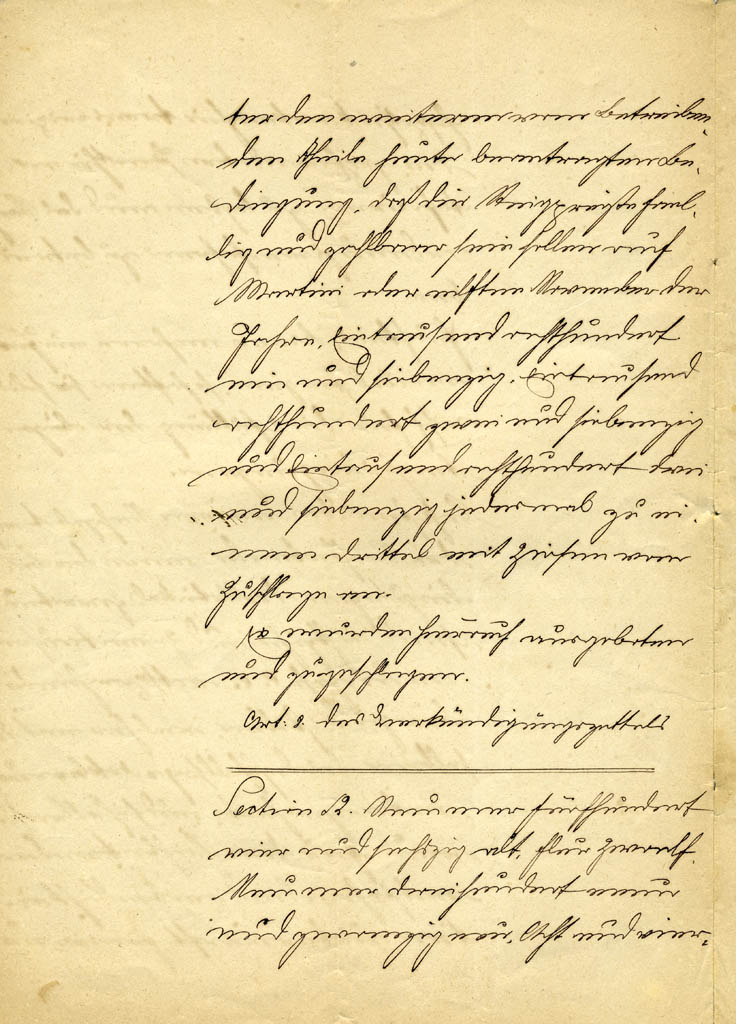 ter den weiteren vom betreiben-
den Theile heute beantragten Be-
dingung, daß die Steigpreise fäl-
lig und zahlbar sein sollen auf
Martini oder eilften November der
Jahre, Eintausend achthundert
ein und siebenzig, Eintausend
achthundert zwei und siebenzig
und Eintausend achthundert drei
und siebenzig jedesmal zu ei-
nem Drittel mit Zinsen vom
Zuschlage an.
Es wurden hierauf ausgeboten
und zugeschlagen.
Art: 9. des Verkündigungszettels
Section B. Nummer fünfhundert
vier und sechszig alt, Flur zwölf
Nummer dreihundert neun
und zwanzig neu, Acht und vier-